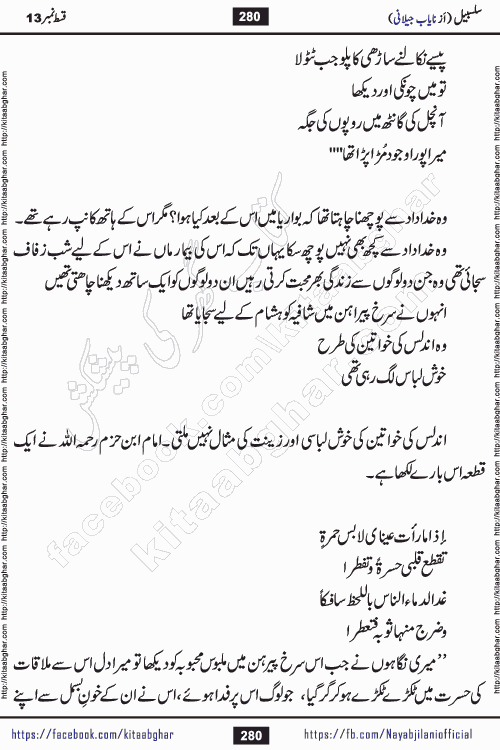 سلسبیل (از نایاب جیلانی)
280
قسط نمبر 13
پیسے نکالنے ساڑھی کا پلو جب ٹٹولا
تو میں چونکی اور دیکھا
آنچل کی گانٹھ میں روپوں کی جگہ
میرا پورا وجود مُڑا پڑا تھا""
وہ خداداد سے پوچھنا چاہتا تھا کہ بواریا میں اس کے بعد کیا ہوا؟ مگر اس کے ہاتھ کانپ رہے تھے۔
وہ خداداد سے کچھ بھی نہیں پوچھ سکا یہاں تک کہ اس کی بیمار ماں نے اس کے لیے شب زفاف
سجائی تھی وہ جن دو لوگوں سے زندگی بھر محبت کرتی رہیں ان دو لوگوں کو ایک ساتھ دیکھنا چاھتی تھیں
انہوں نے سرخ پیراہن میں شافیہ کو ہشام کے لیے سجایا تھا
وہ اندلس کی خواتین کی طرح
خوش لباس لگ رہی تھی
اندلس کی خواتین کی خوش لباسی اور زینت کی مثال نہیں ملتی۔ امام ابن حزم رحمہ اللہ نے ایک
قطعہ اس بارے لکھا ہے۔
إذا ما رأت عيناي لا بس حمرةٍ
تقطع قلبي حسرةً و تفطرا
غدا لدماء الناس باللحظ سافكاً
وضرج منها ثوبه فتعطرا
’’میری نگاہوں نے جب اس سرخ پیرہن میں ملبوس محبوبہ کو دیکھا تو میرا دل اس سے ملاقات
کی حسرت میں ٹکڑے ٹکڑے ہو کر گر گیا، جو لوگ اس پر فدا ہوئے، اس نے ان کے خونِ بسمل سے اپنے
https://facebook.com/kitaabghar
280
https://fb.com/Nayabjilaniofficial
http://kitaabghar.com http://kitaabghar.com http://kitaabghar.com http://kitaabghar.com http://kitaabghar.com
http://kitaabghar.com http://kitaabghar.com http://kitaabghar.com http://kitaabghar.com http://kitaabghar.com
کتاب گھر کی پیشکش
kitaabghar.com
facebook.com/kitaabghar